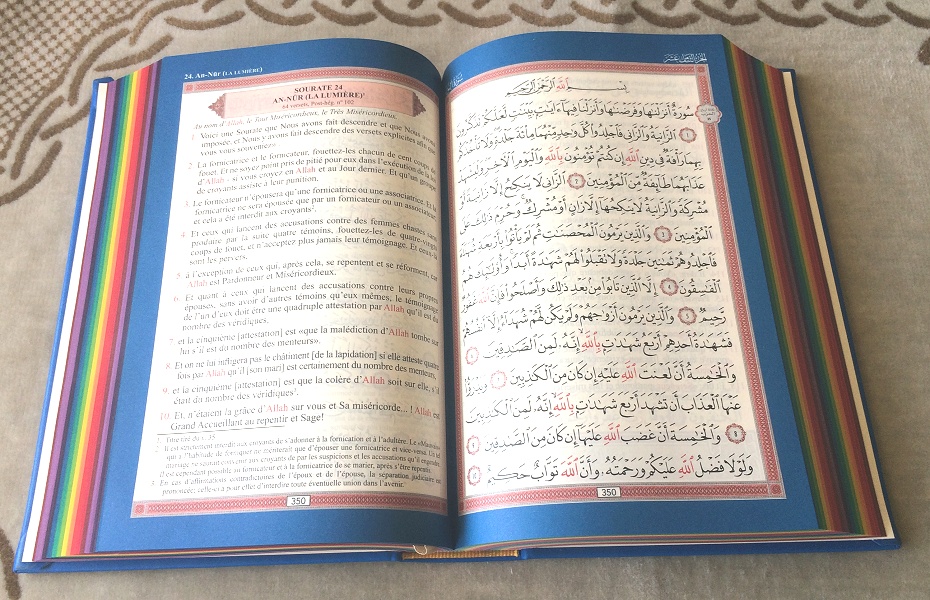 24. An-Nûr (LA LUMIÈRE)
SOURATE 24
AN-NÛR (LA LUMIÈRE)¹
64 versets, Post-hég. n° 102
Au nom d'Allah, le Tout Miséricordieux, le Très Miséricordieux.
1. Voici une Sourate que Nous avons fait descendre et que Nous avons
imposée, et Nous y avons fait descendre des versets explicites afin que
vous vous souveniez».
2. La fornicatrice et le fornicateur, fouettez-les chacun de cent coups de
fouet. Et ne soyez point pris de pitié pour eux dans l'exécution de la loi
d'Allah - si vous croyez en Allah et au Jour dernier. Et qu'un groupe
de croyants assiste à leur punition.
3. Le fornicateur n'épousera qu'une fornicatrice ou une associatrice. Et la
fornicatrice ne sera épousée que par un fornicateur ou un associateur;
et cela a été interdit aux croyants².
4. Et ceux qui lancent des accusations contre des femmes chastes sans
produire par la suite quatre témoins, fouettez-les de quatre-vingts
coups de fouet, et n'acceptez plus jamais leur témoignage. Et ceux-là
sont les pervers,
5. à l'exception de ceux qui, après cela, se repentent et se réforment, car
Allah est Pardonneur et Miséricordieux.
6. Et quant à ceux qui lancent des accusations contre leurs propres
épouses, sans avoir d'autres témoins qu'eux mêmes, le témoignage
de l'un d'eux doit être une quadruple attestation par Allah qu'il est du
nombre des véridiques.
7. et la cinquième [attestation] est «que la malédiction d'Allah tombe sur
lui s'il est du nombre des menteurs».
8. Et on ne lui infligera pas le châtiment [de la lapidation] si elle atteste quatre
fois par Allah qu'il [son mari] est certainement du nombre des menteurs,
9. et la cinquième [attestation] est que la colère d'Allah soit sur elle, s'il
était du nombre des véridiques³.
10. Et, n'étaient la grâce d'Allah sur vous et Sa miséricorde...! Allah est
Grand Accueillant au repentir et Sage!
1. Titre tiré du v. 35
2. Il est strictement interdit aux croyants de s'adonner à la fornication et à l'adultère. Le «Musulman»
qui a l'habitude de forniquer ne mériterait que d'épouser une fornicatrice et vice-versa. Un tel
mariage ne saurait convenir aux croyants de par les suspicions et les accusations qu'il engendre.
Il est cependant possible au fornicateur et à la fornicatrice de se marier, après s'être repentis.
3. En cas d'affirmations contradictoires de l'époux et de l'épouse, la séparation judiciaire est
prononcée; celle-ci a pour effet d'interdire toute éventuelle union dans l'avenir.
350
الجزء الثامن عشر
بِسْمِ اللَّهِ الرَّحْمَنِ الرَّحِيمِ
سُورَةٌ أَنزَلْنَاهَا وَفَرَضْنَاهَا وَأَنزَلْنَا فِيهَا آيَاتٍ بَيِّنَاتٍ لَّعَلَّكُمْ تَذَكَّرُونَ
١ الزَّانِيَةُ وَالزَّانِي فَاجْلِدُوا كُلَّ وَاحِدٍ مِّنْهُمَا مِائَةَ جَلْدَةٍ وَلَا تَأْخُذْكُم
بِهِمَا رَأْفَةٌ فِي دِينِ اللَّهِ إِن كُنتُمْ تُؤْمِنُونَ بِاللَّهِ وَالْيَوْمِ الْآخِرِ وَلْيَشْهَدْ
عَذَابَهُمَا طَائِفَةٌ مِّنَ الْمُؤْمِنِينَ ٢ الزَّانِي لَا يَنكِحُ إِلَّا زَانِيَةً أَوْ
مُشْرِكَةً وَالزَّانِيَةُ لَا يَنكِحُهَا إِلَّا زَانٍ أَوْ مُشْرِكٌ وَحُرِّمَ ذَلِكَ عَلَى
الْمُؤْمِنِينَ ٣ وَالَّذِينَ يَرْمُونَ الْمُحْصَنَاتِ ثُمَّ لَمْ يَأْتُوا بِأَرْبَعَةِ شُهَدَاءَ
فَاجْلِدُوهُمْ ثَمَانِينَ جَلْدَةً وَلَا تَقْبَلُوا لَهُمْ شَهَادَةً أَبَدًا وَأُولَئِكَ هُمُ
الْفَاسِقُونَ ٤ إِلَّا الَّذِينَ تَابُوا مِن بَعْدِ ذَلِكَ وَأَصْلَحُوا فَإِنَّ اللَّهَ غَفُورٌ
رَّحِيمٌ ٥ وَالَّذِينَ يَرْمُونَ أَزْوَاجَهُمْ وَلَمْ يَكُن لَّهُمْ شُهَدَاءُ إِلَّا أَنفُسُهُمْ
فَشَهَادَةُ أَحَدِهِمْ أَرْبَعُ شَهَادَاتٍ بِاللَّهِ إِنَّهُ لَمِنَ الصَّادِقِينَ ٦
وَالْخَامِسَةُ أَنَّ لَعْنَتَ اللَّهِ عَلَيْهِ إِن كَانَ مِنَ الْكَاذِبِينَ ٧ وَيَدْرَؤُا
عَنْهَا الْعَذَابَ أَن تَشْهَدَ أَرْبَعَ شَهَادَاتٍ بِاللَّهِ إِنَّهُ لَمِنَ الْكَاذِبِينَ
٨ وَالْخَامِسَةَ أَنَّ غَضَبَ اللَّهِ عَلَيْهَا إِن كَانَ مِنَ الصَّادِقِينَ ٩
وَلَوْلَا فَضْلُ اللَّهِ عَلَيْكُمْ وَرَحْمَتُهُ وَأَنَّ اللَّهَ تَوَّابٌ حَكِيمٌ ١٠
350